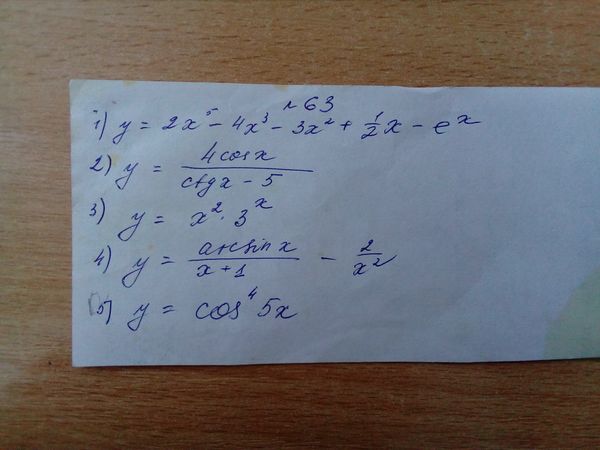 №63
1) y = 2x⁵ - 4x³ - 3x² + 1/2 x - eˣ
2) y = 4cosx / (ctgx - 5)
3) y = x² · 3ˣ
4) y = arcsin x / (x + 1) - 2/x²
5) y = cos⁴ 5x